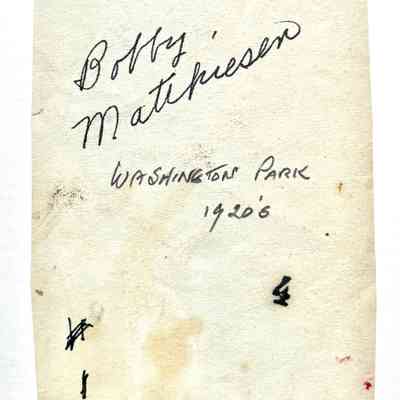 Bobby
Matthiesen
WASHINGTON PARK
1920's
4
#
1